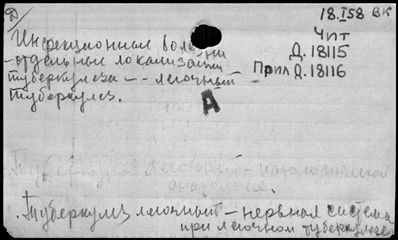 Д
18.I58 ВК
Инфекционная болезни
Чит
-отдельные локализации
Д.18115
туберкулеза -- легочный
Прил Д.18116
туберкулез.
А
Туберкулез легочный - патологическая
анатомия.
Туберкулез легочный - нервная система
при легочном туберкулезе